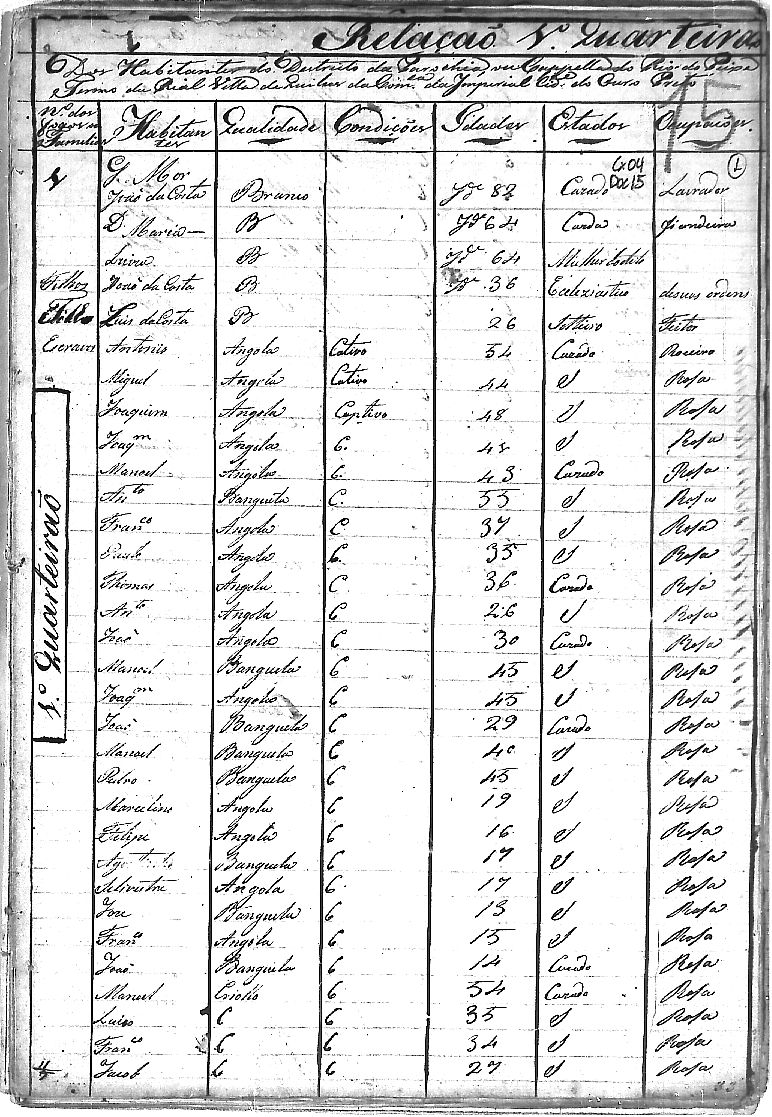 Relação 1º Quarteirão
Dos Habitantes do Districto da Parochia, ou Cappella do Rio do Peixe
Termo da Real Villa de Queluz da Com.ca da Imperial Cid.e do Ouro Preto
N.º dos Fogos e Familias Habitantes Qualidade Condições Idades Estados Ocupações
15
Cx 04
Doc 15
1
1 G. Mor
João da Costa Branco Jd.e 82 Cazado Lavrador
D. Maria B Jd.e 64 Cazda Fiandeira
B Jd.e 64
Filhos João da Costa B Jd.e 36 Ecleziastico de suas ordens
Luis da Costa B 26 Solteiro Feitor
Escravos Antonio Angola Cativo 54 Cazado Roceiro
Miguel Angola Cativo 44 S Rosa
Joaquim Angola Captivo 48 S Rosa
Joaqm Angola C. S Rosa
Manoel Angola C. 43 Cazado Rosa
Anto Banguela C. 55 S Rosa
Franco Angola C 37 S Rosa
Angola C. 35 S Rosa
Thomas Angola C. 36 Cazado Rosa
Anto Angola C 26 S Rosa
João Angola C 30 Cazado Rosa
Manoel Banguela C 45 S Rosa
Joaqm Angola C 45 S Rosa
João Banguela C 29 Cazado Rosa
Manoel Banguela C 40 S Rosa
Pedro Banguela C 45 S Rosa
Marcelino Angola C 19 S Rosa
Felipe Angola C 16 S Rosa
Banguela C 17 S Rosa
Silvestre Angola C. 17 S Rosa
Joze Banguela C 13 S Rosa
Franco Angola C 15 S Rosa
João Banguela C 14 Cazado Rosa
Manoel Criollo C 54 Cazado Rosa
C C 35 S Rosa
Franco C C 34 S Rosa
Jacob C C 27 S Rosa
1º Quarteirão